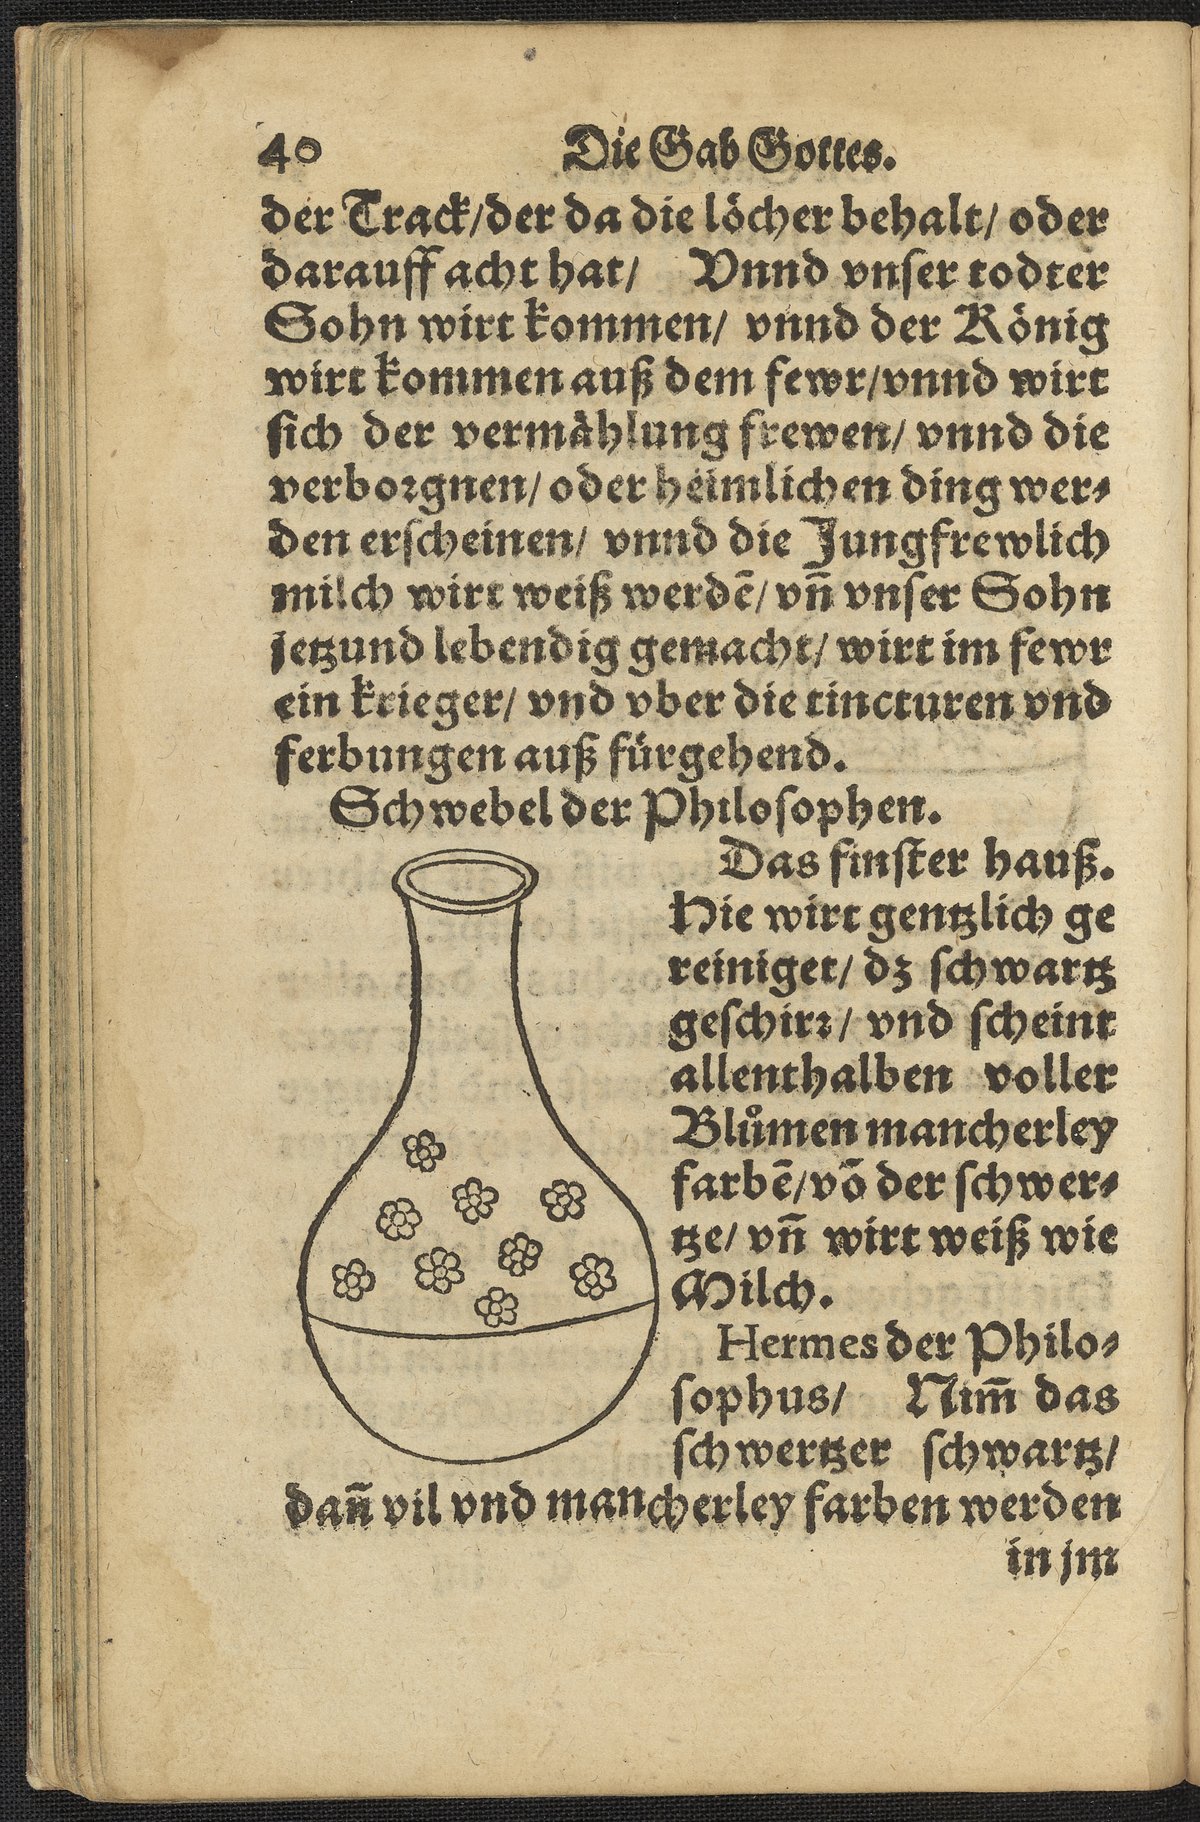 40 Die Gab Gottes.
der Track/der da die löcher behalt/ oder
darauff acht hat/ Vnnd vnser todter
Sohn wirt kommen/ vnnd der König
wirt kommen auß dem fewr/vnnd wirt
sich der vermählung frewen/ vnnd die
verborgnen/ oder heimlichen ding wer⸗
den erscheinen/ vnnd die Jungfrewlich
milch wirt weiß werdē/ vn̄ vnser Sohn
jetzund lebendig gemacht/ wirt im fewr
ein krieger/ vnd vber die tincturen vnd
ferbungen auß fürgehend.
Schwebel der Philosophen.
Das finster hauß.
Hie wirt gentzlich ge
reiniget/ dz schwartz
geschirr/ vnd scheint
allenthalben voller
Blůmen mancherley
farbē/vō der schwer⸗
tze/ vn̄ wirt weiß wie
Milch.
Hermes der Philo⸗
sophus/ Nim̄ das
schwertzer schwartz/
dan̄ vil vnd mancherley farben werden
in jm